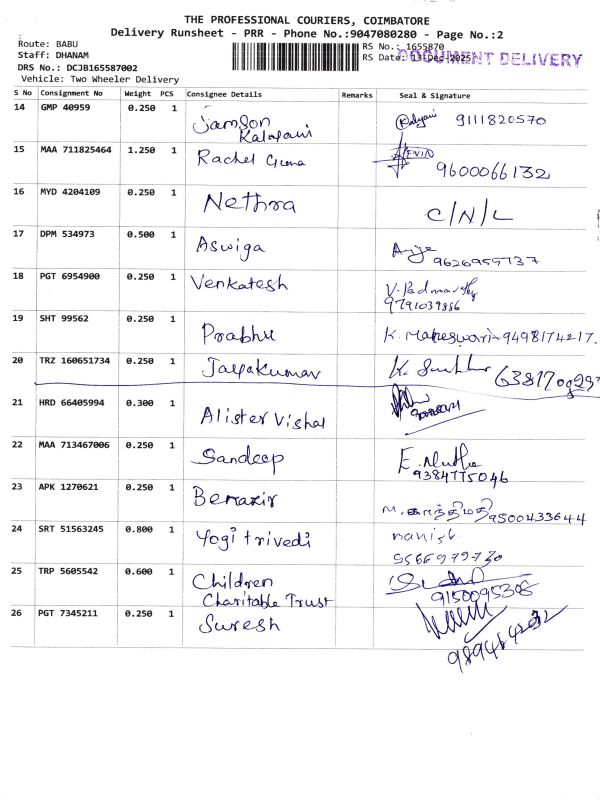 THE PROFESSIONAL COURIERS, COIMBATORE
Delivery Runsheet - PRR - Phone No.:9047080280 - Page No.:2
Route: BABU
Staff: DHANAM
DRS No.: DCJB165587002
Vehicle: Two Wheeler Delivery
RS No.: 1655870
RS Date: 13-Dec-2025
DOCUMENT DELIVERY
S No Consignment No Weight PCS Consignee Details Remarks Seal & Signature
14 GMP 40959 0.250 1 Jamson Kalayani Kalyani 9111820570
15 MAA 711825464 1.250 1 Rachel Guna 9600066132
16 MYD 4204109 0.250 1 Nethra C/N/L
17 DPM 534973 0.500 1 Aswiga 9626955737
18 PGT 6954900 0.250 1 Venkatesh V. Padmavathy 9791039886
19 SHT 99562 0.250 1 Prabhu K. Maheswari 9498174217
20 TRZ 160651734 0.250 1 Jayakumar K.
21 HRD 66405994 0.300 1 Alister Vishal
22 MAA 713467006 0.250 1 Sandeep E. Muthu 9384775046
23 APK 1270621 0.250 1 Benazir 9500433644
24 SRT 51563245 0.800 1 Yogi trivedi manish
25 TRP 5605542 0.600 1 Children Charitable Trust 9150095308
26 PGT 7345211 0.250 1 Suresh